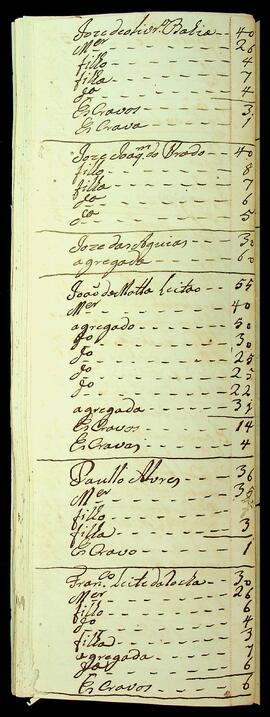 Joze de olivrª Bahia - - 40
Mer - - - - - 26
fillo - - - - - 4
filla - - - - - 7
do - - - - - 4
Escravos - - - - 3
Escrava - - - - 1
Joze Joaqm do Prado - - 40
fillo - - - - - 8
filla - - - - - 7
da - - - - - 6
da - - - - - 5
Joze das Aguias - - - 30
agregada - - - - 60
João da Motta Leitao - - 55
Mer - - - - - 40
agregado - - - - 50
do - - - - - 30
do - - - - - 25
do - - - - - 25
do - - - - - 22
agregada - - - - 35
Escravos - - - - 14
Escravas - - - - 4
Paullo Alvres - - - 36
Mer - - - - - 35
fillo - - - - -
filla - - - - - 3
Escravo - - - - 1
Franco Leite da Rocha - - 30
Mer - - - - - 26
fillo - - - - - 6
do - - - - - 4
filla - - - - - 3
agregada - - - - 7
da - - - - - 6
Escravos - - - - 6